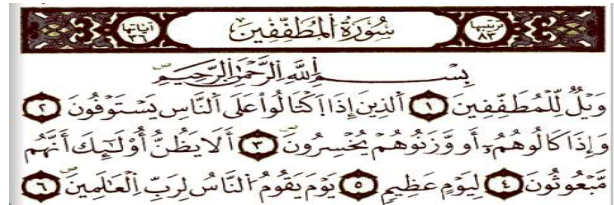 ترتيبها ٨٣ سُورَةُ الْمُطَفِّفِينَ آياتها ٣٦
بِسْمِ اللَّهِ الرَّحْمَٰنِ الرَّحِيمِ
وَيْلٌ لِّلْمُطَفِّفِينَ ١ ٱلَّذِينَ إِذَا ٱكْتَالُوا۟ عَلَى ٱلنَّاسِ يَسْتَوْفُونَ ٢
وَإِذَا كَالُوهُمْ أَو وَّزَنُوهُمْ يُخْسِرُونَ ٣ أَلَا يَظُنُّ أُو۟لَٰٓئِكَ أَنَّهُم
مَّبْعُوثُونَ ٤ لِيَوْمٍ عَظِيمٍ ٥ يَوْمَ يَقُومُ ٱلنَّاسُ لِرَبِّ ٱلْعَٰلَمِينَ ٦